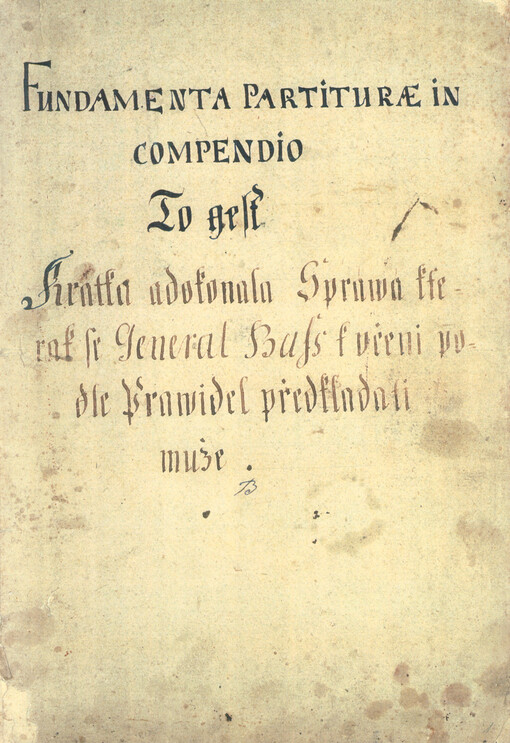 FUNDAMENTA PARTITURÆ IN
COMPENDIO
To gest
Krátka adokonala Sprawa kte-
rak se General Bass k včeni po-
dle Prawidel předkladati
muže .
B